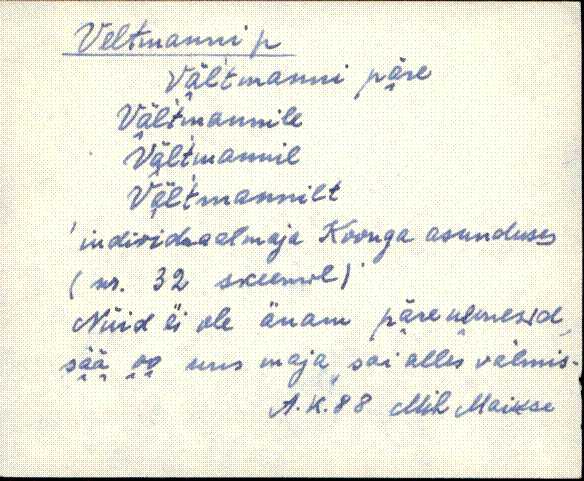 Veltmanni p
Vält'manni päre
Vält'mannile
Vält'mannil
Vält'mannilt
'individuaalmaja Koonga asunduses
(nr. 32 skeemil)'
Nüid ei ole änam päre nimesid,
sää oo uus maja, sai alles valmis.
A.K. 88 Mih Maikse